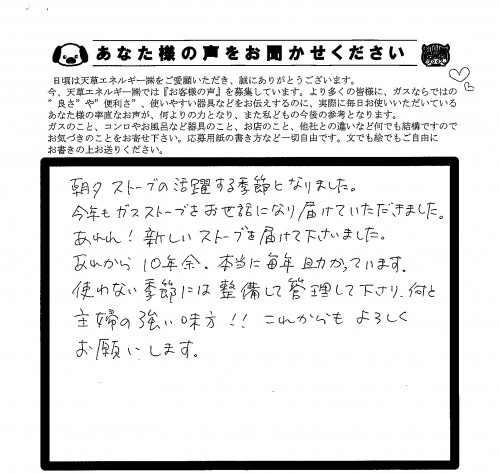 あなた様の声をお聞かせください
日頃は天草エネルギー㈱をご愛顧いただき、誠にありがとうございます。
今、天草エネルギー㈱では『お客様の声』を募集しています。より多くの皆様に、ガスならではの
"良さ"や"便利さ"、使いやすい器具などをお伝えするのに、実際に毎日お使いいただいている
あなた様の率直なお声が、何よりの力となり、また私どもの今後の参考となります。
ガスのこと、コンロやお風呂など器具のこと、お店のこと、他社との違いなど何でも結構ですので
お気づきのことをお寄せ下さい。応募用紙の書き方など一切自由です。文でも絵でもご自由に
お書きの上お送りください。
朝夕ストーブの活躍する季節となりました。
今年もガスストーブをお世話になり届けていただきました。
あれれ！新しいストーブを届けて下さいました。
あれから10年余。本当に毎年助かっています。
使わない季節には整備して管理して下さり、何と
主婦の強い味方!!これからもよろしく
お願いします。